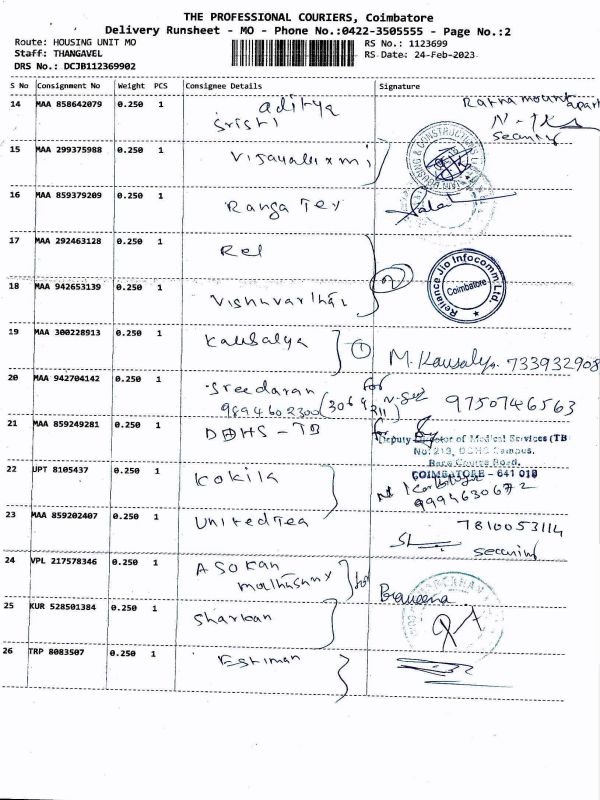 THE PROFESSIONAL COURIERS, Coimbatore
Delivery Runsheet - MO - Phone No.:0422-3505555 - Page No.:2
Route: HOUSING UNIT MO
RS No.: 1123699
Staff: THANGAVEL
RS Date: 24-Feb-2023
DRS No.: DCJB112369902
S No Consignment No Weight PCS Consignee Details Signature
14 MAA 858642079 0.250 1 aditya
Sristi
Ratna mount apart
security
15 MAA 299375988 0.250 1 Vijayaluxmi
HOUSING & CONSTRUCTIONS
16 MAA 859379209 0.250 1 Ranga Tex
17 MAA 292463128 0.250 1 Rel
Reliance Jio Infocomm Ltd.
Coimbatore
18 MAA 942653139 0.250 1 Vishnuvardhan
19 MAA 300228913 0.250 1 Kausalya
1 M. Kausalya. 733932908
20 MAA 942704142 0.250 1 Sreedaran for
9894602300 9750746563
21 MAA 859249281 0.250 1 DDHS-TB for
Deputy Director of Medical Services (TB
No: 219, DDHS Campus,
Race Course Road,
COIMBATORE - 641 018
22 UPT 8105437 0.250 1 Kokila
9994630672
23 MAA 859202407 0.250 1 United Tea
7810053114
security
24 VPL 217578346 0.250 1 ASOKAN
for Praveena
25 KUR 528501384 0.250 1 Sharban
26 TRP 8083507 0.250 1